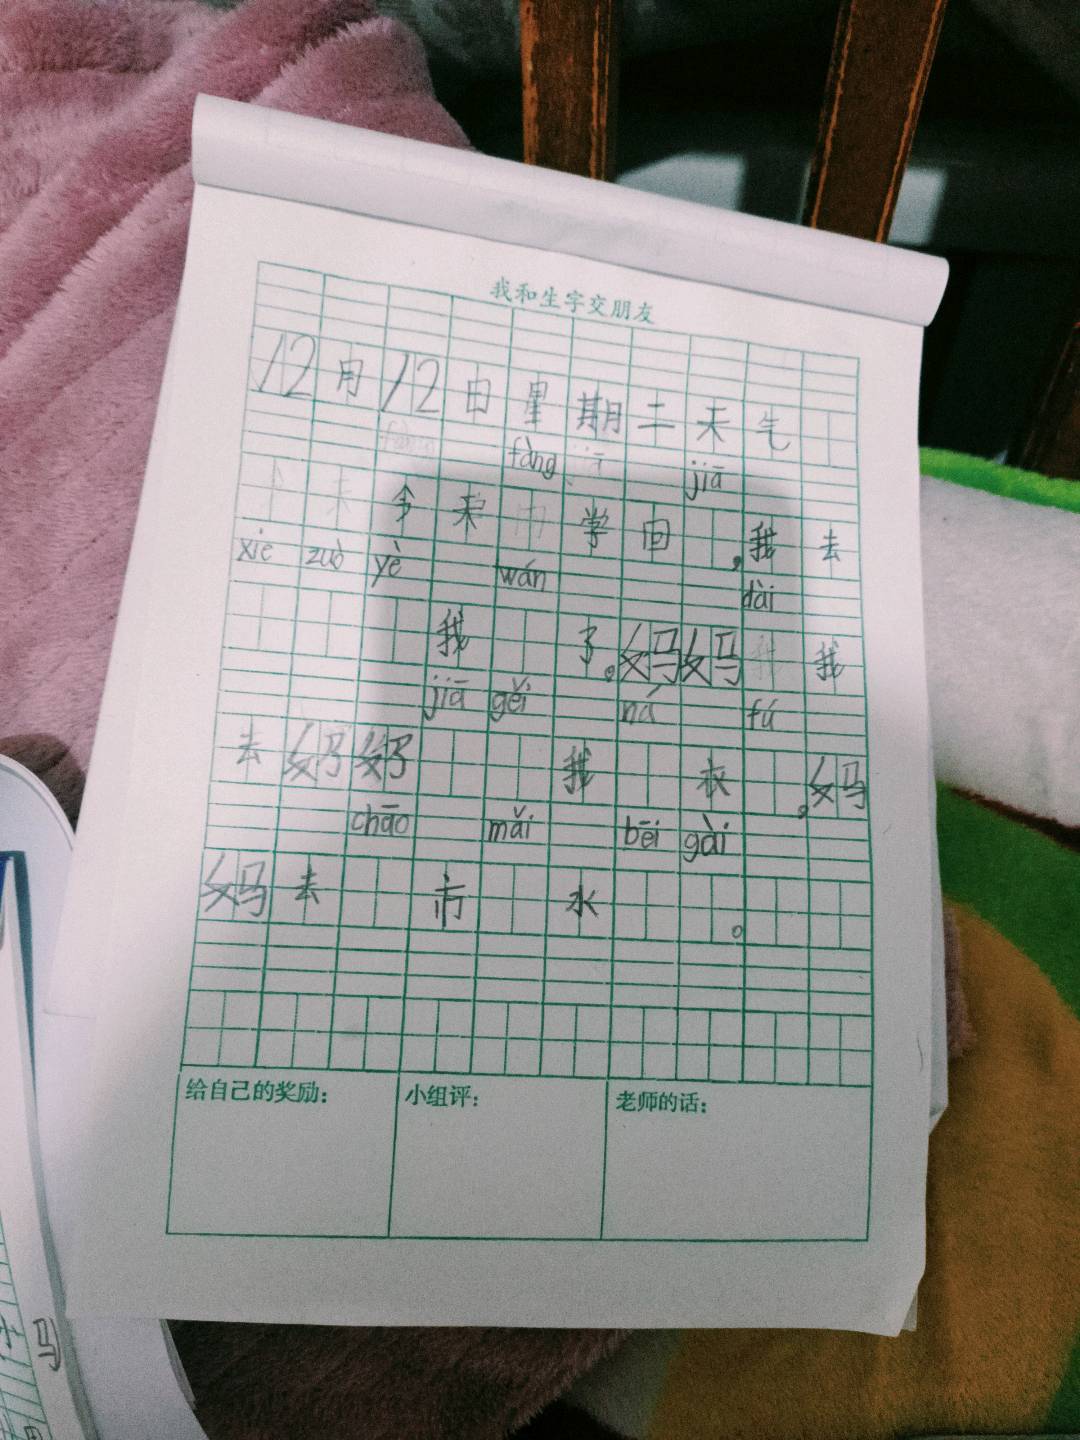 我和生字交朋友
12月12日星期二天气
fàng jiā
今来学回,我去
xiě zuò yè wán dài
我了。妈妈我
jiā gěi ná fú
去妈妈我衣。妈
chāo mǎi bēi gài
妈去市水。
给自己的奖励:
小组评:
老师的话:
马